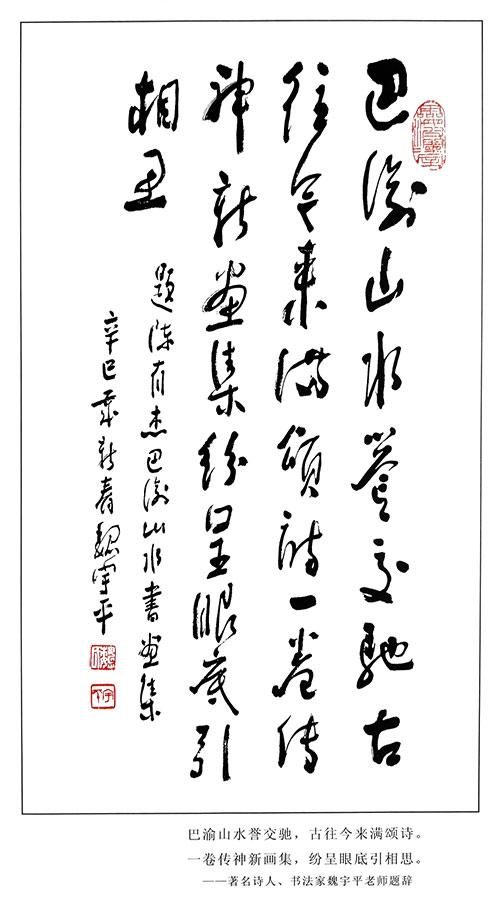 巴渝山水誉交馳古
往今来满頌詩一卷传
神新画集纷呈眼底引
相思
題陈有杰巴渝山水書画集
辛巳歲新春魏宇平
巴渝山水誉交驰，古往今来满颂诗。
一卷传神新画集，纷呈眼底引相思。
——著名诗人、书法家魏宇平老师题辞